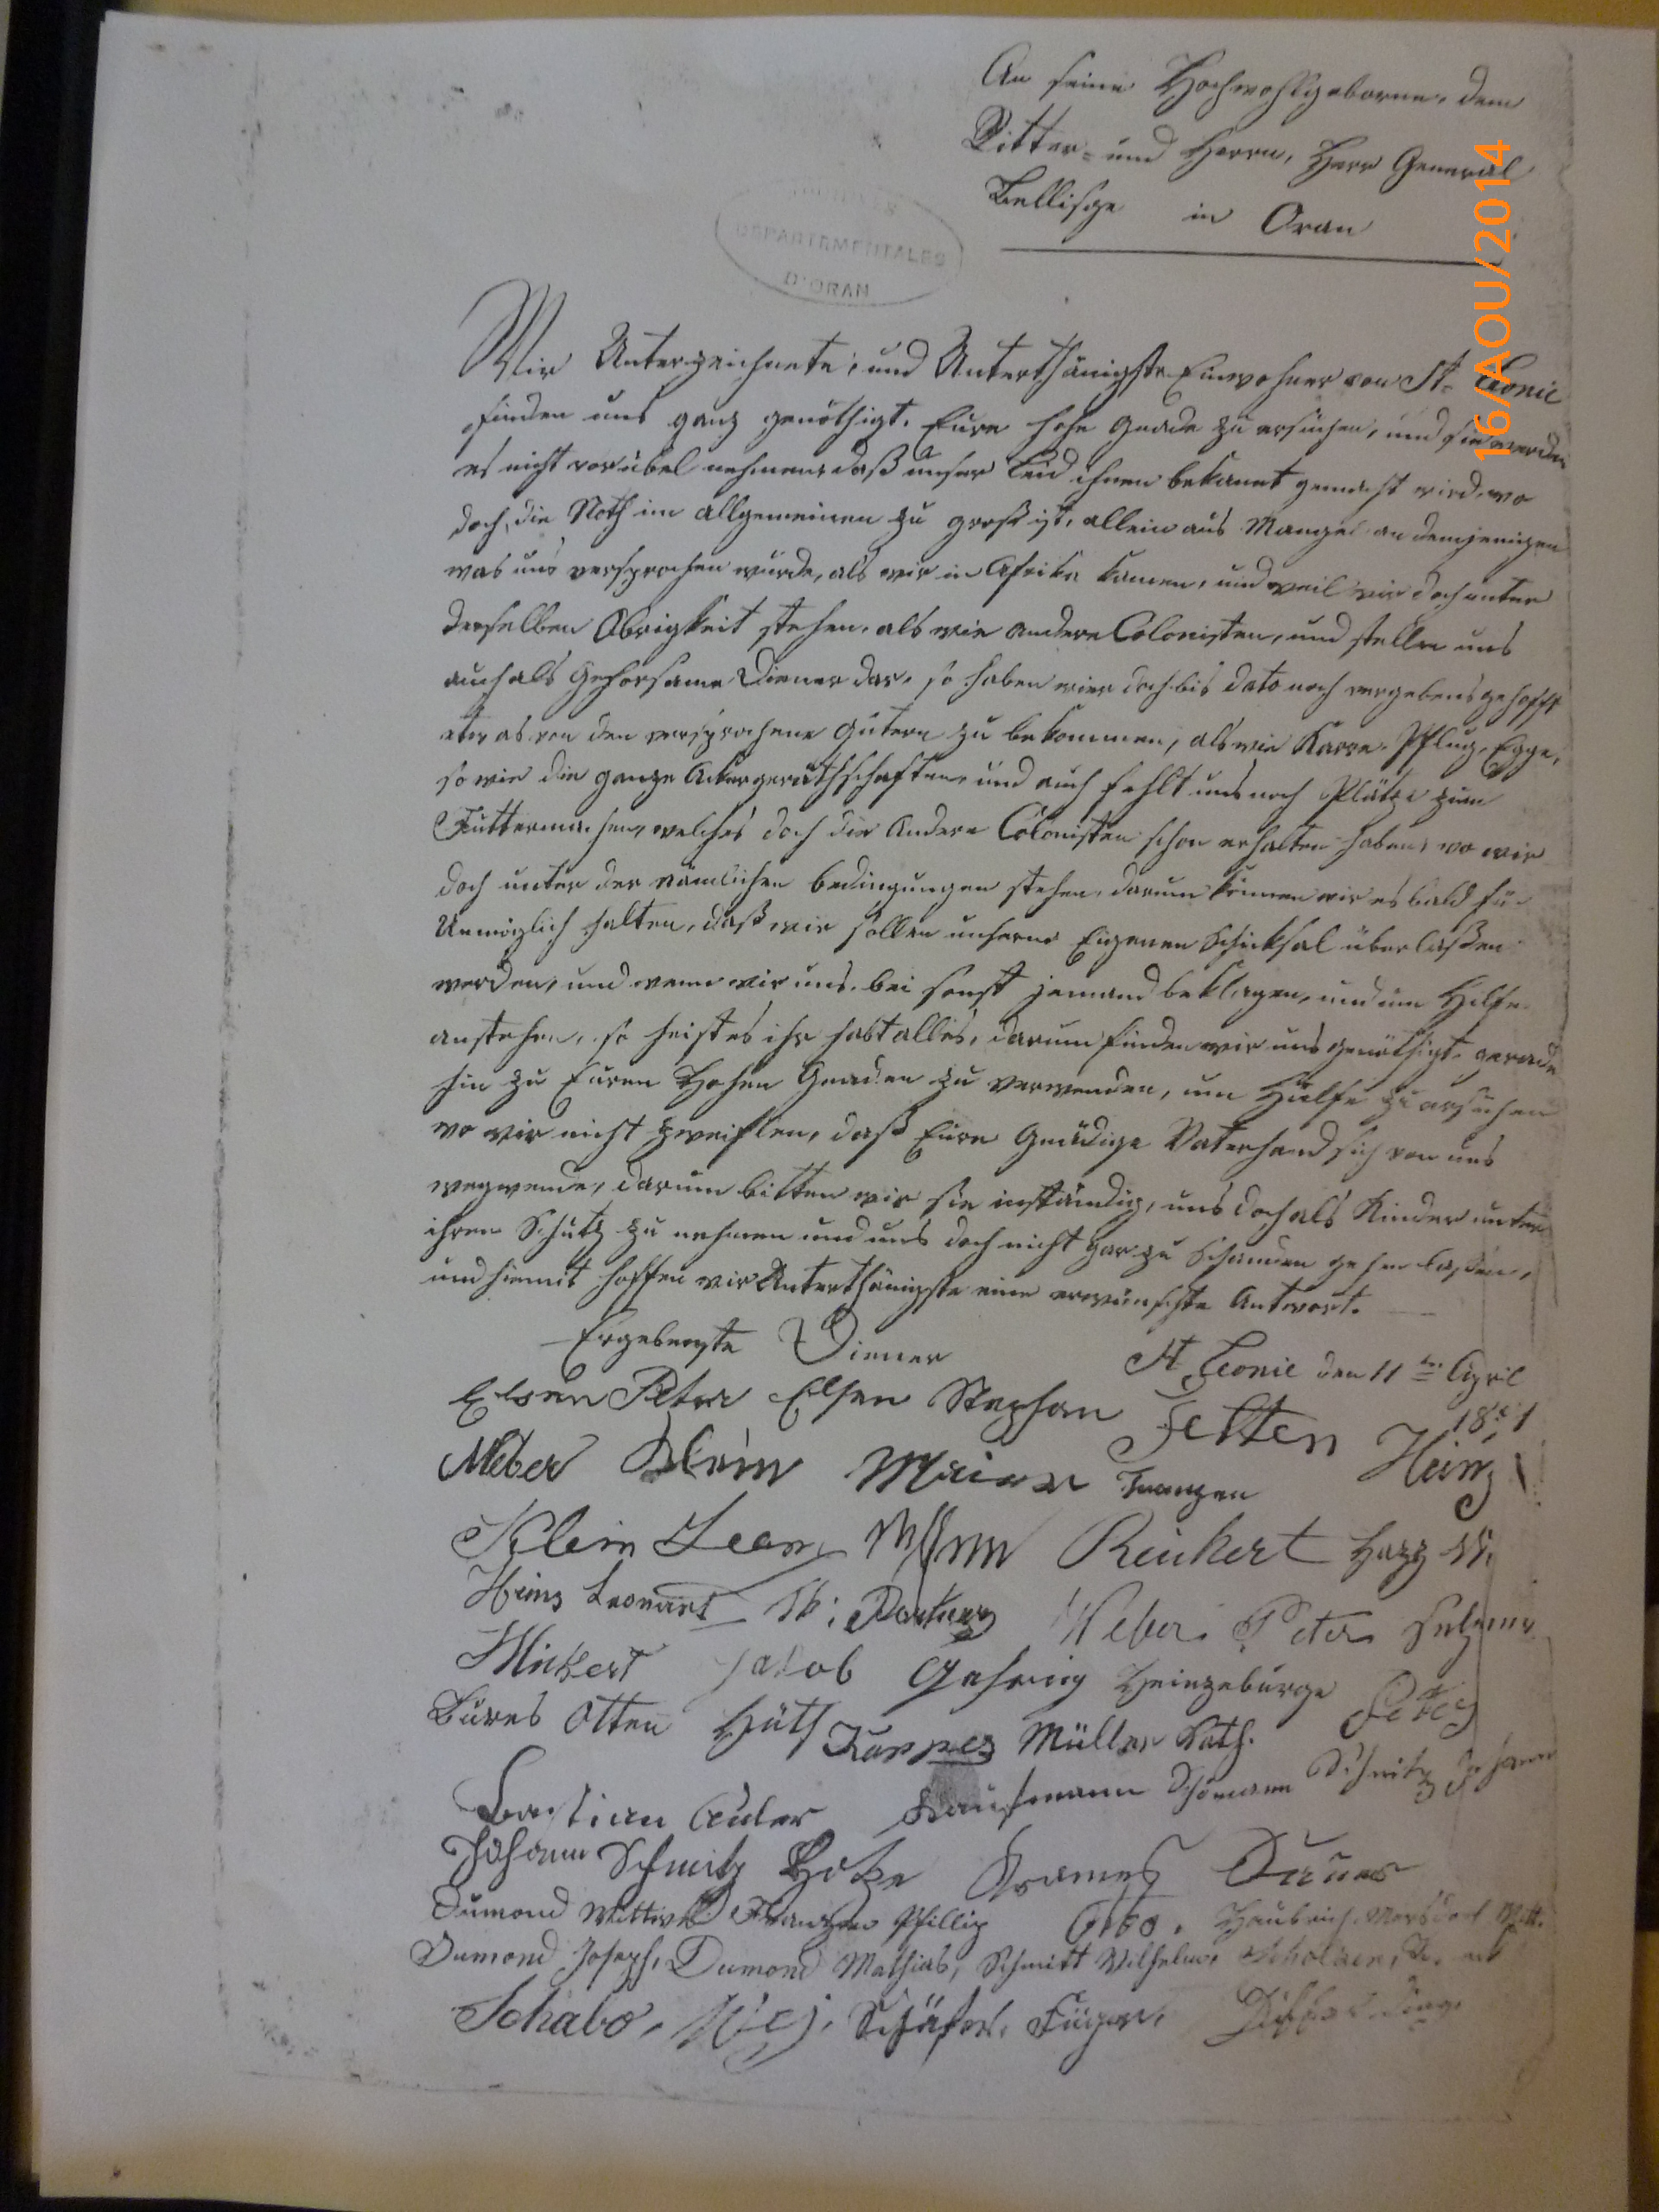 An seine Hochwohlgeborne, dem
Ritter- und Herrn, Herr General
Bellisge in Oran
16/AOU/2014
DEPARTEMENTALES
D'ORAN
Wir Unterzeichnete, und Unterthänigste Einwohner von St. Leonie
finden uns ganz genöthigt, Eure hohe Gnade zu ersuchen, und sie werden
es nicht vor übel nehmen, daß unser Leid ihnen bekannt gemacht wird, wo
doch die Noth im allgemeinen zu groß ist, allein aus Mangel an demjenigen
was uns versprochen wurde, als wir in Afrika kamen, und weil wir doch unter
derselben Obrigkeit stehen, als wie andere Colonisten, und stellen uns
auch als Gehorsame Diener dar, so haben wier doch bis dato noch vergebens gehofft
etwas von den versprochene Gütern zu bekommen, als wie Karre, Pflug, Egge,
so wie die ganze Ackergeräthschaften, und auch fehlt uns noch Plätze zum
Futtermachen, welches doch die Andere Colonisten schon erhalten haben, wo wir
doch unter der nämlichen bedingungen stehen, darum können wir es bald für
Unmöglich halten, daß wir sollen unserne Eigenen Schicksal überlaßen
werden, und wenn wir uns bei sonst jemand beklagen, und um Hilfe
anstehen, so heist es ihr habt alles, darum finden wir uns genöthigt, gerade
hin zu Euren Hohen Gnaden zu verwenden, um Hülfe zu ersuchen
wo wir nicht zweiflen, daß Eure Gnädige Vaterhand sich von uns
wegwende, darum bitten wir sie inständig, uns doch als Kinder unter
ihren Schutz zu nehmen und uns doch nicht gar zu Schanden gehen laßen,
und hiemit hoffen wir Unterthänigste eine erwünschte Antwort.
Ergebenste Diener
St. Leonie den 11ten April
Elsen Peter Elsen Stephan Felten
Weber Klein Meier Franzen Heinz
Klein Reichert
Heinz Leonard Weber Peter
Jakob Gehring Heinzeburge Peter
Bures Otten Huth Kappes Müller Kath.
Bastian Auler Kaufmann Schömann Schmitz Johann
Johann Schmitz Hotze Krames
Dumond Wittwe Franzen Phillip Haubrich, Mersdorf Witt.
Dumond Joseph, Dumond Mathias, Schmitt Wilhelm,
Schabo, Schäfer,